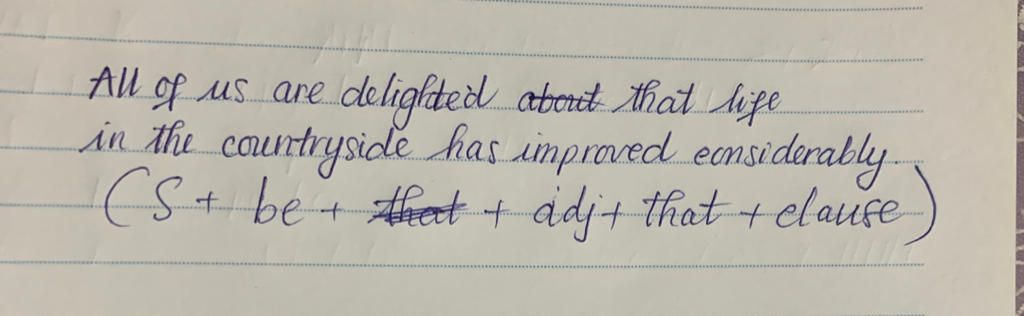 All of us are delighted about that life
in the countryside has improved considerably.
(S + be + that + adj + that + clause)